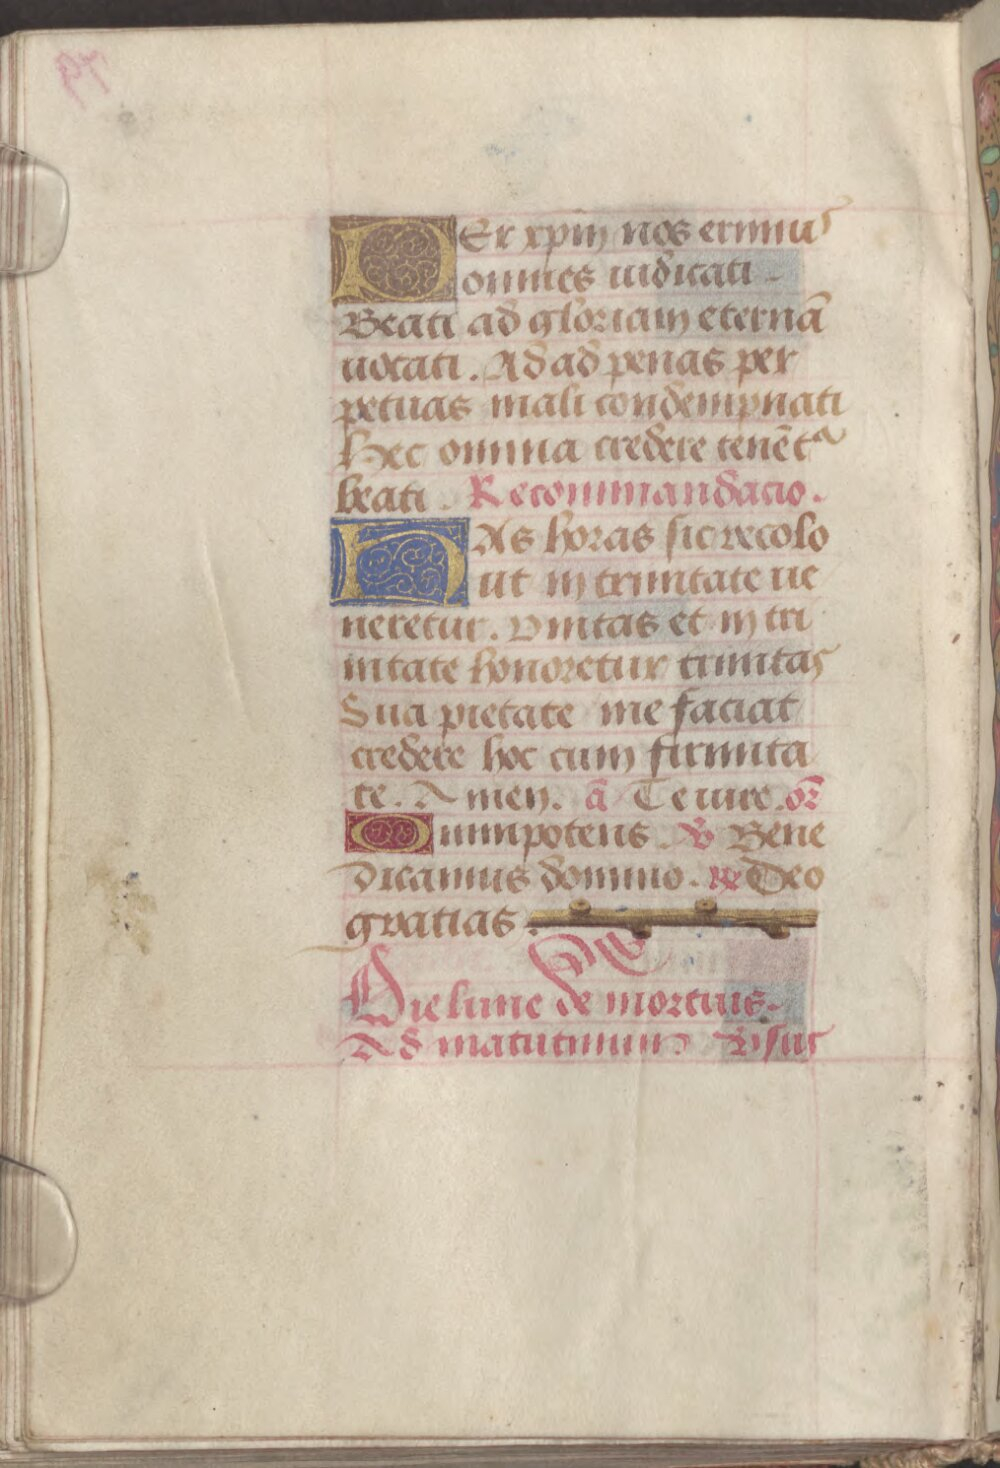 PEr xpm nos erimus
omnes iudicati -
Beati ad gloriam eternã
uocati. Ad ad penas per
petuas mali condempnati
Hec omnia credere tenẽtᵃ
beati. Recommandacio.
HAs horas sic recolo
ut in trinitate ue
neretur. Vnitas et in tri
nitate honoretur trinitas
Sua pietate me faciat
credere hoc cum firmita
te. Amen. ã Te iure. or̃
Omnipotens ℣ Bene
dicamus domino. ℟ Deo
gratias.
Die lune de mortuis.
Ad matutinum Vsus